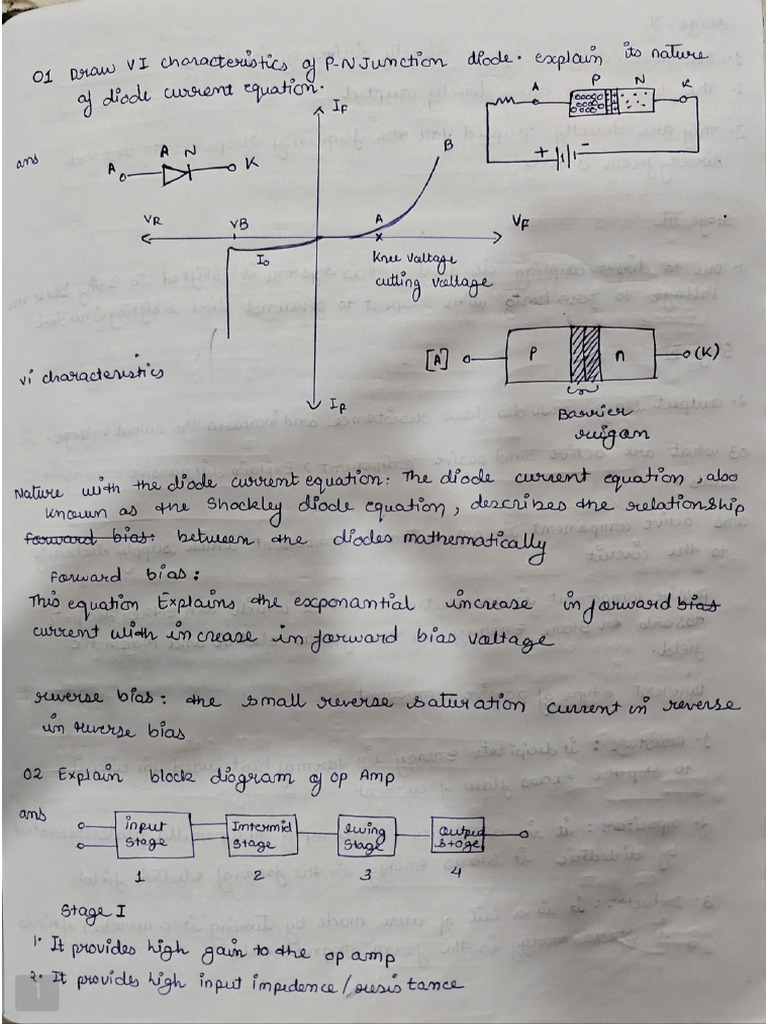 01 Draw VI characteristics of P-N Junction diode. explain its nature
of diode current equation.
ans
A
A N
K
IF
B
A P N K
+ -
VR
VB
A
VF
Io
Knee Voltage
cutting voltage
vi characteristics
[A] P n (K)
IR
Barrier
reigan
Nature with the diode current equation: The diode current equation, also
known as the Shockley diode equation, describes the relationship
forward bias: between the diodes mathematically
Forward bias:
This equation Explains the exponantial increase in forward bias
current with increase in forward bias voltage
reverse bias: the small reverse saturation current in reverse
in reverse bias
02 Explain block diagram of op Amp
ans
input
stage
Intermid
stage
swing
stage
Output
stage
1 2 3 4
Stage I
1. It provides high gain to the op amp
2. It provides high input impedence / resistance
1